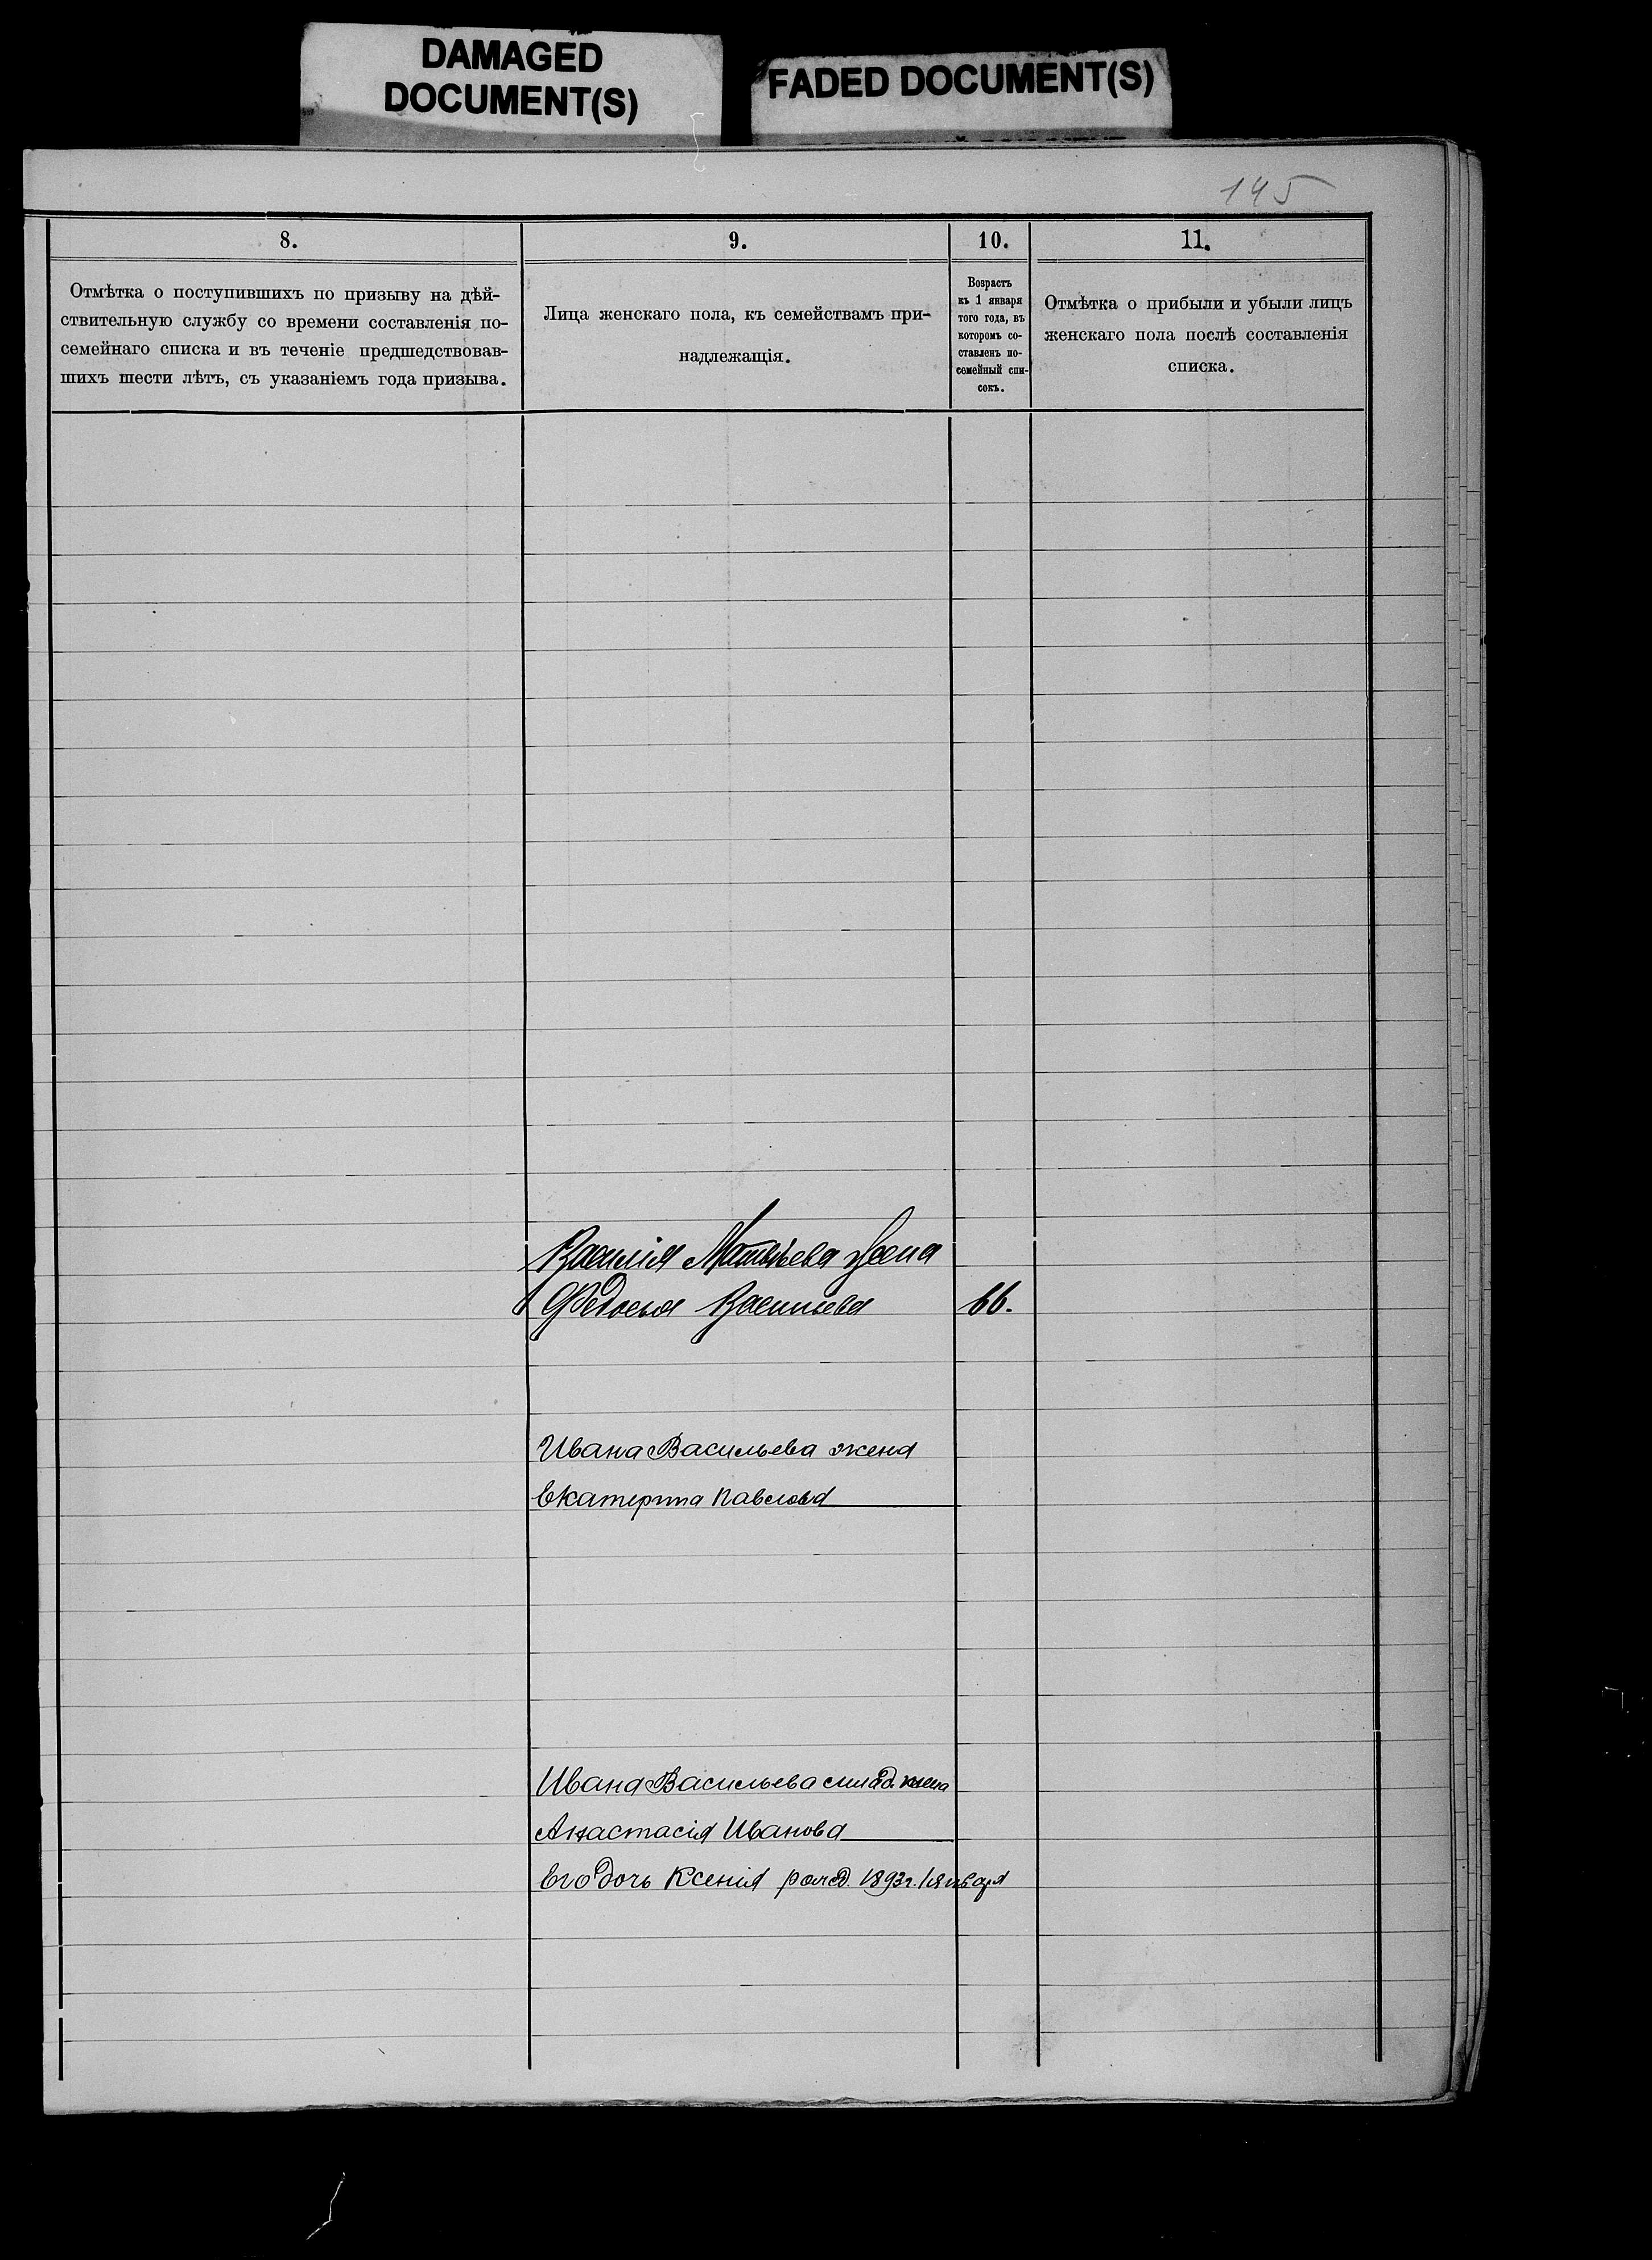 DAMAGED
DOCUMENT(S)
FADED DOCUMENT(S)
145
8.
9.
10.
11.
Отмѣтка о поступившихъ по призыву на дѣй-
ствительную службу со времени составленія по-
семейнаго списка и въ теченіе предшедствовав-
шихъ шести лѣтъ, съ указаніемъ года призыва.
Лица женскаго пола, къ семействамъ при-
надлежащія.
Возрастъ
къ 1 января
того года, въ
которомъ со-
ставленъ по-
семейный спи-
сокъ.
Отмѣтка о прибыли и убыли лицъ
женскаго пола послѣ составленія
списка.
Василія Матвѣева жена
Федосья Васильева 66.
Ивана Васильева жена
Екатерина Павлова
Ивана Васильева млад. жена
Анастасія Иванова
Его дочь Ксенія рожд. 1893г. 18 января